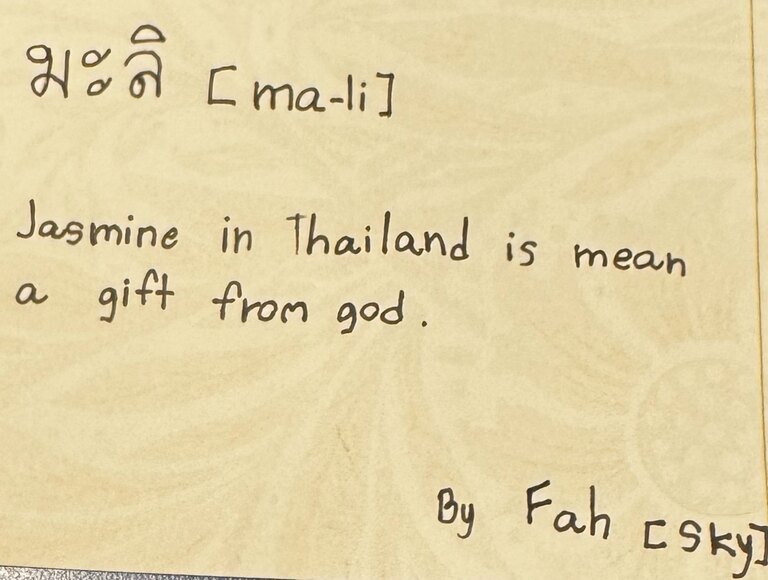 มะลิ [ma-li]
Jasmine in Thailand is mean
a gift from god.
By Fah [Sky]